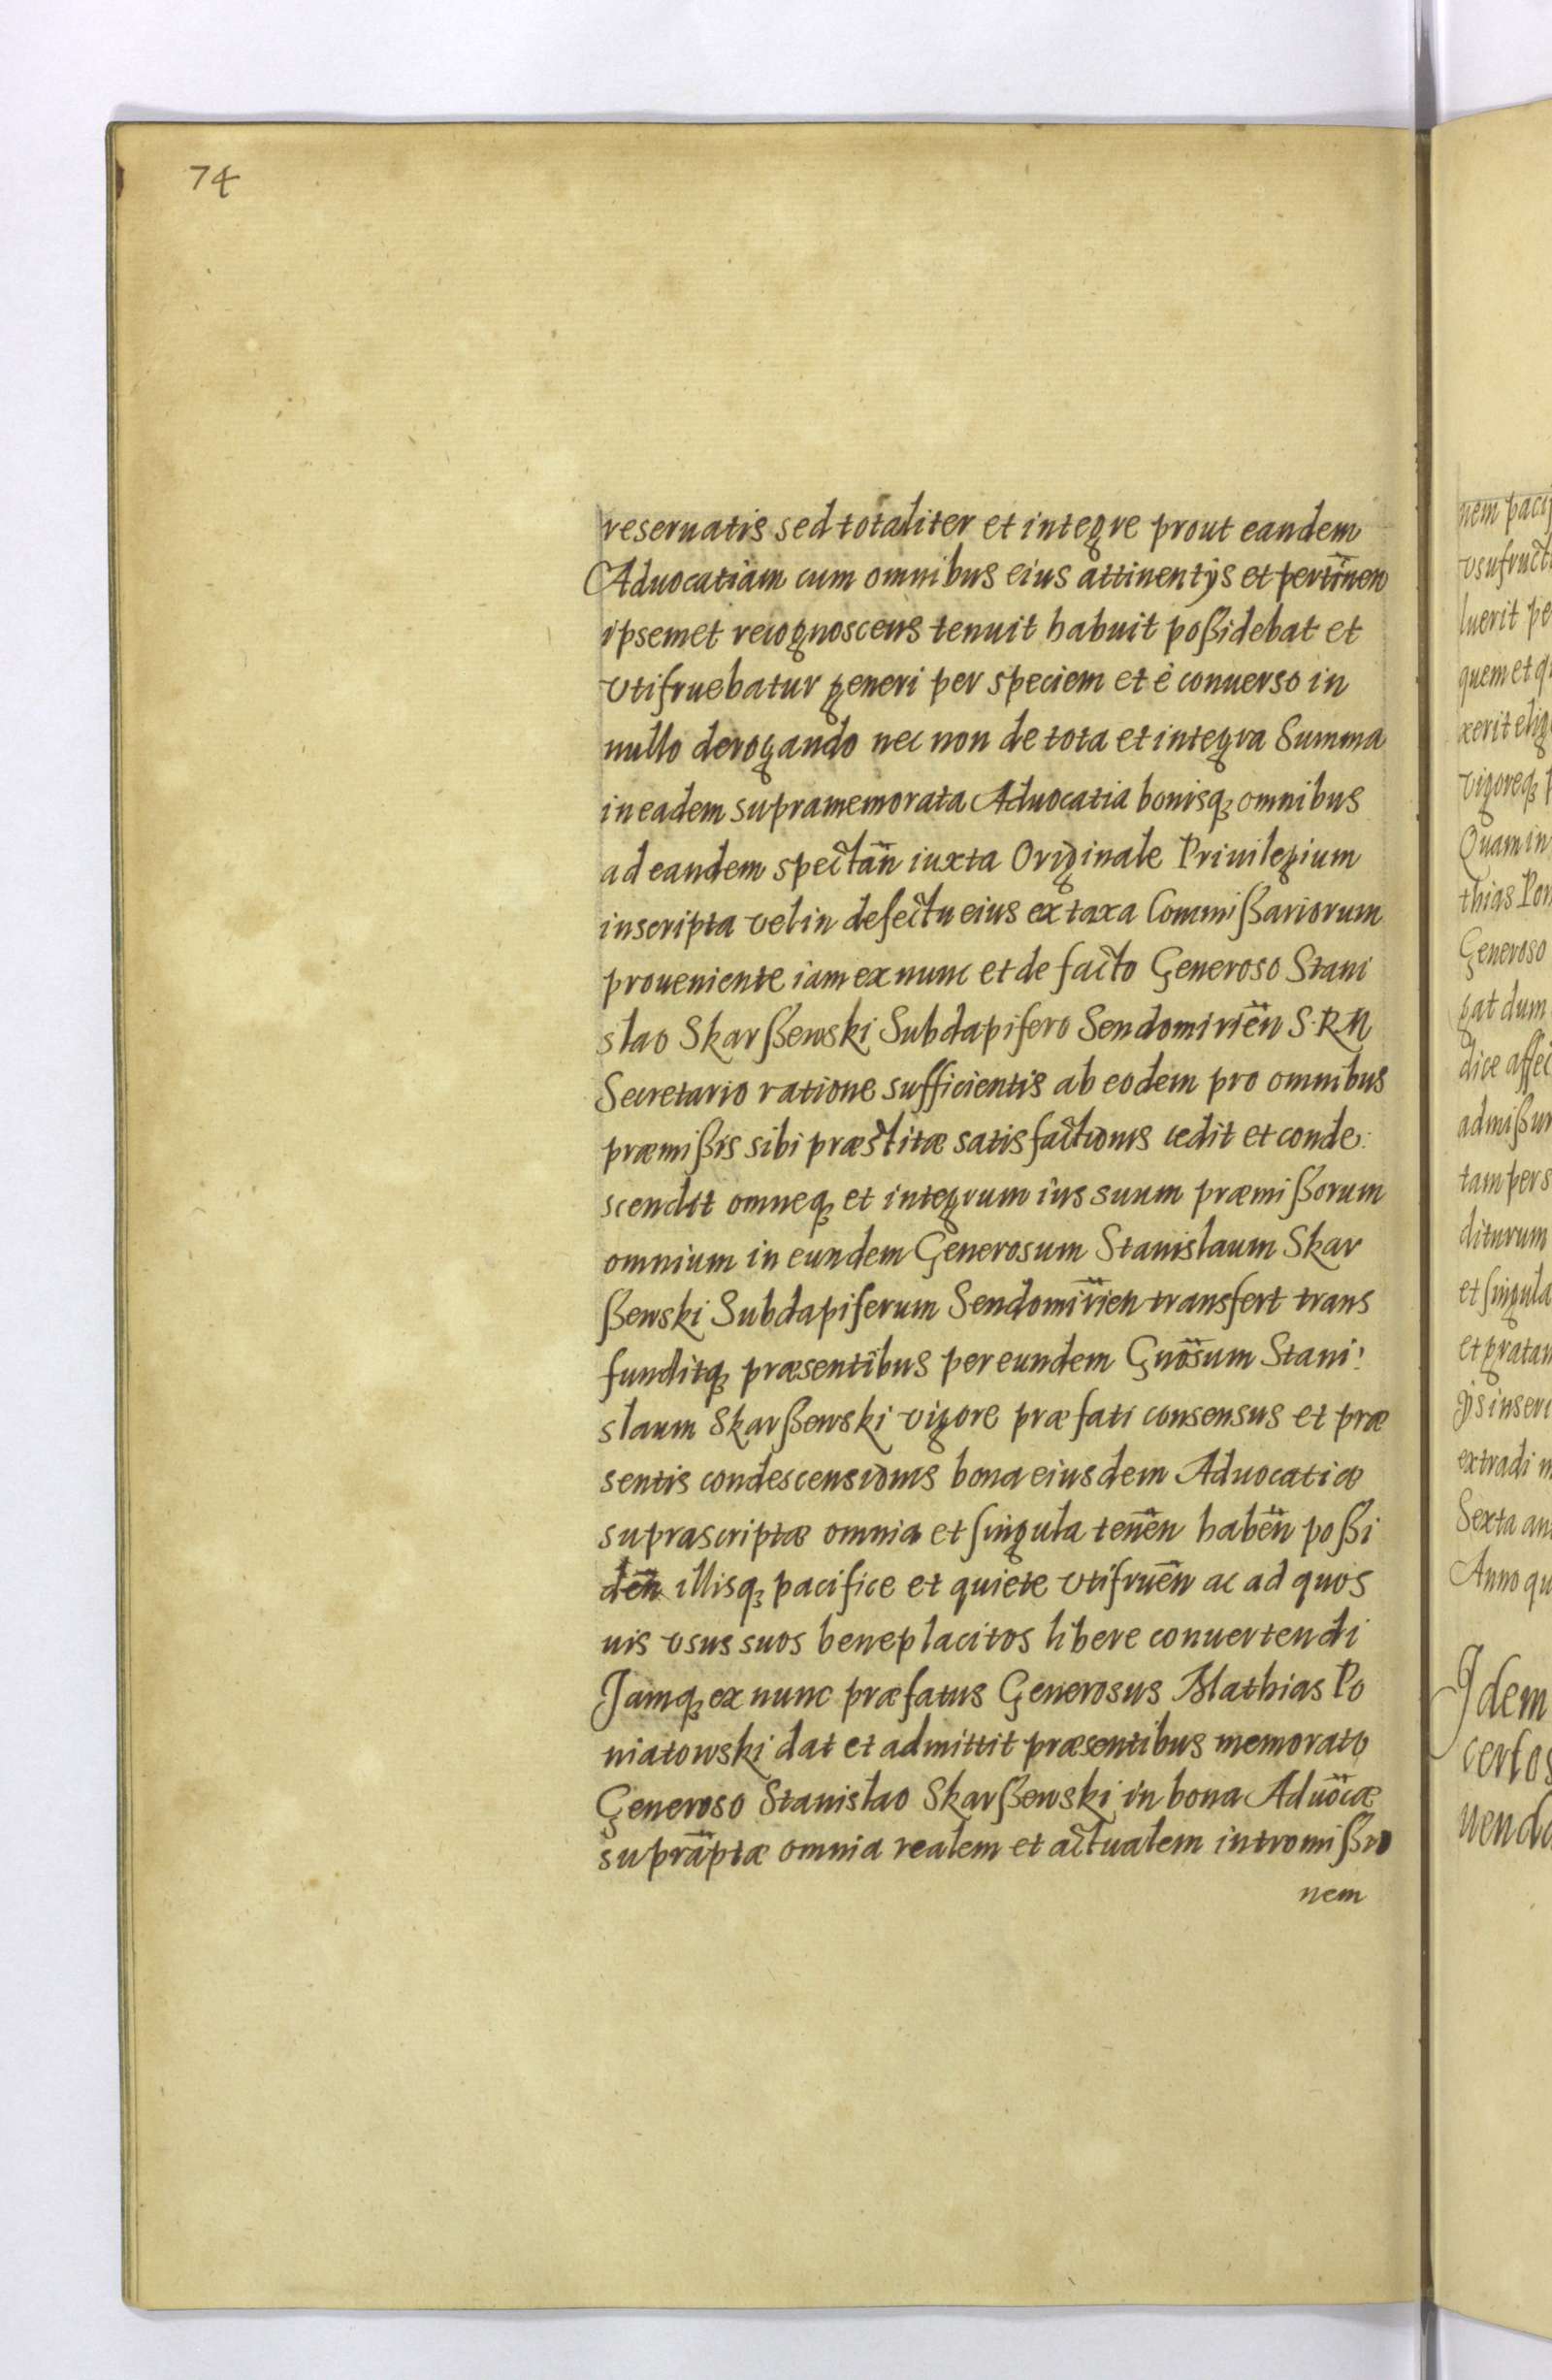 74
reseruatis sed totaliter et integre prout eandem
Aduocatiam cum omnibus eius attinentijs et pertineñ
ipsemet recognoscens tenuit habuit poßidebat et
vtifruebatur generi per speciem et è conuerso in
nullo derogando nec non de tota et integra Summa
in eadem supramemorata Aduocatia bonisq₃ omnibus
ad eandem spectañ iuxta Originale Priuilegium
inscripta vel in defectu eius ex taxa Commißariorum
proueniente iam ex nunc et de facto Generoso Stani
slao Skarßewski Subdapifero Sendomirieñ S. R. M
Secretario ratione sufficientis ab eodem pro omnibus
præmißis sibi præstitæ satisfactionis cedit et conde
scendit omneq₃ et integrum ius suum præmißorum
omnium in eundem Generosum Stanislaum Skar
ßewski Subdapiferum Sendomirieñ transfert trans
funditq₃ præsentibus per eundem Gnõsum Stani:
slaum Skarßewski vigore præfati consensus et præ
sentis condescensionis bona eiusdem Aduocatiæ
suprascriptæ omnia et singula teneñ habeñ poßi
deñ illisq₃ pacifice et quiete vtifrueñ ac ad quos
uis vsus suos beneplacitos libere conuertendi
Jamq₃ ex nunc præfatus Generosus Mathias Po
niatowski dat et admittit præsentibus memorato
Generoso Stanislao Skarßewski in bona Aduõcæ
suprãptæ omnia realem et actualem intromißio
nem
nem paci
vsufruct
luerit pe
quem et q
xerit elig
vigoreq₃ p
Quam in
thias Pon
Generoso
gat dum
dice affec
admißur
tam pers
diturum
et singula
et gratan
ijs inseri
extradi m
Sexta an
Anno qu
Jdem
certos
uenda